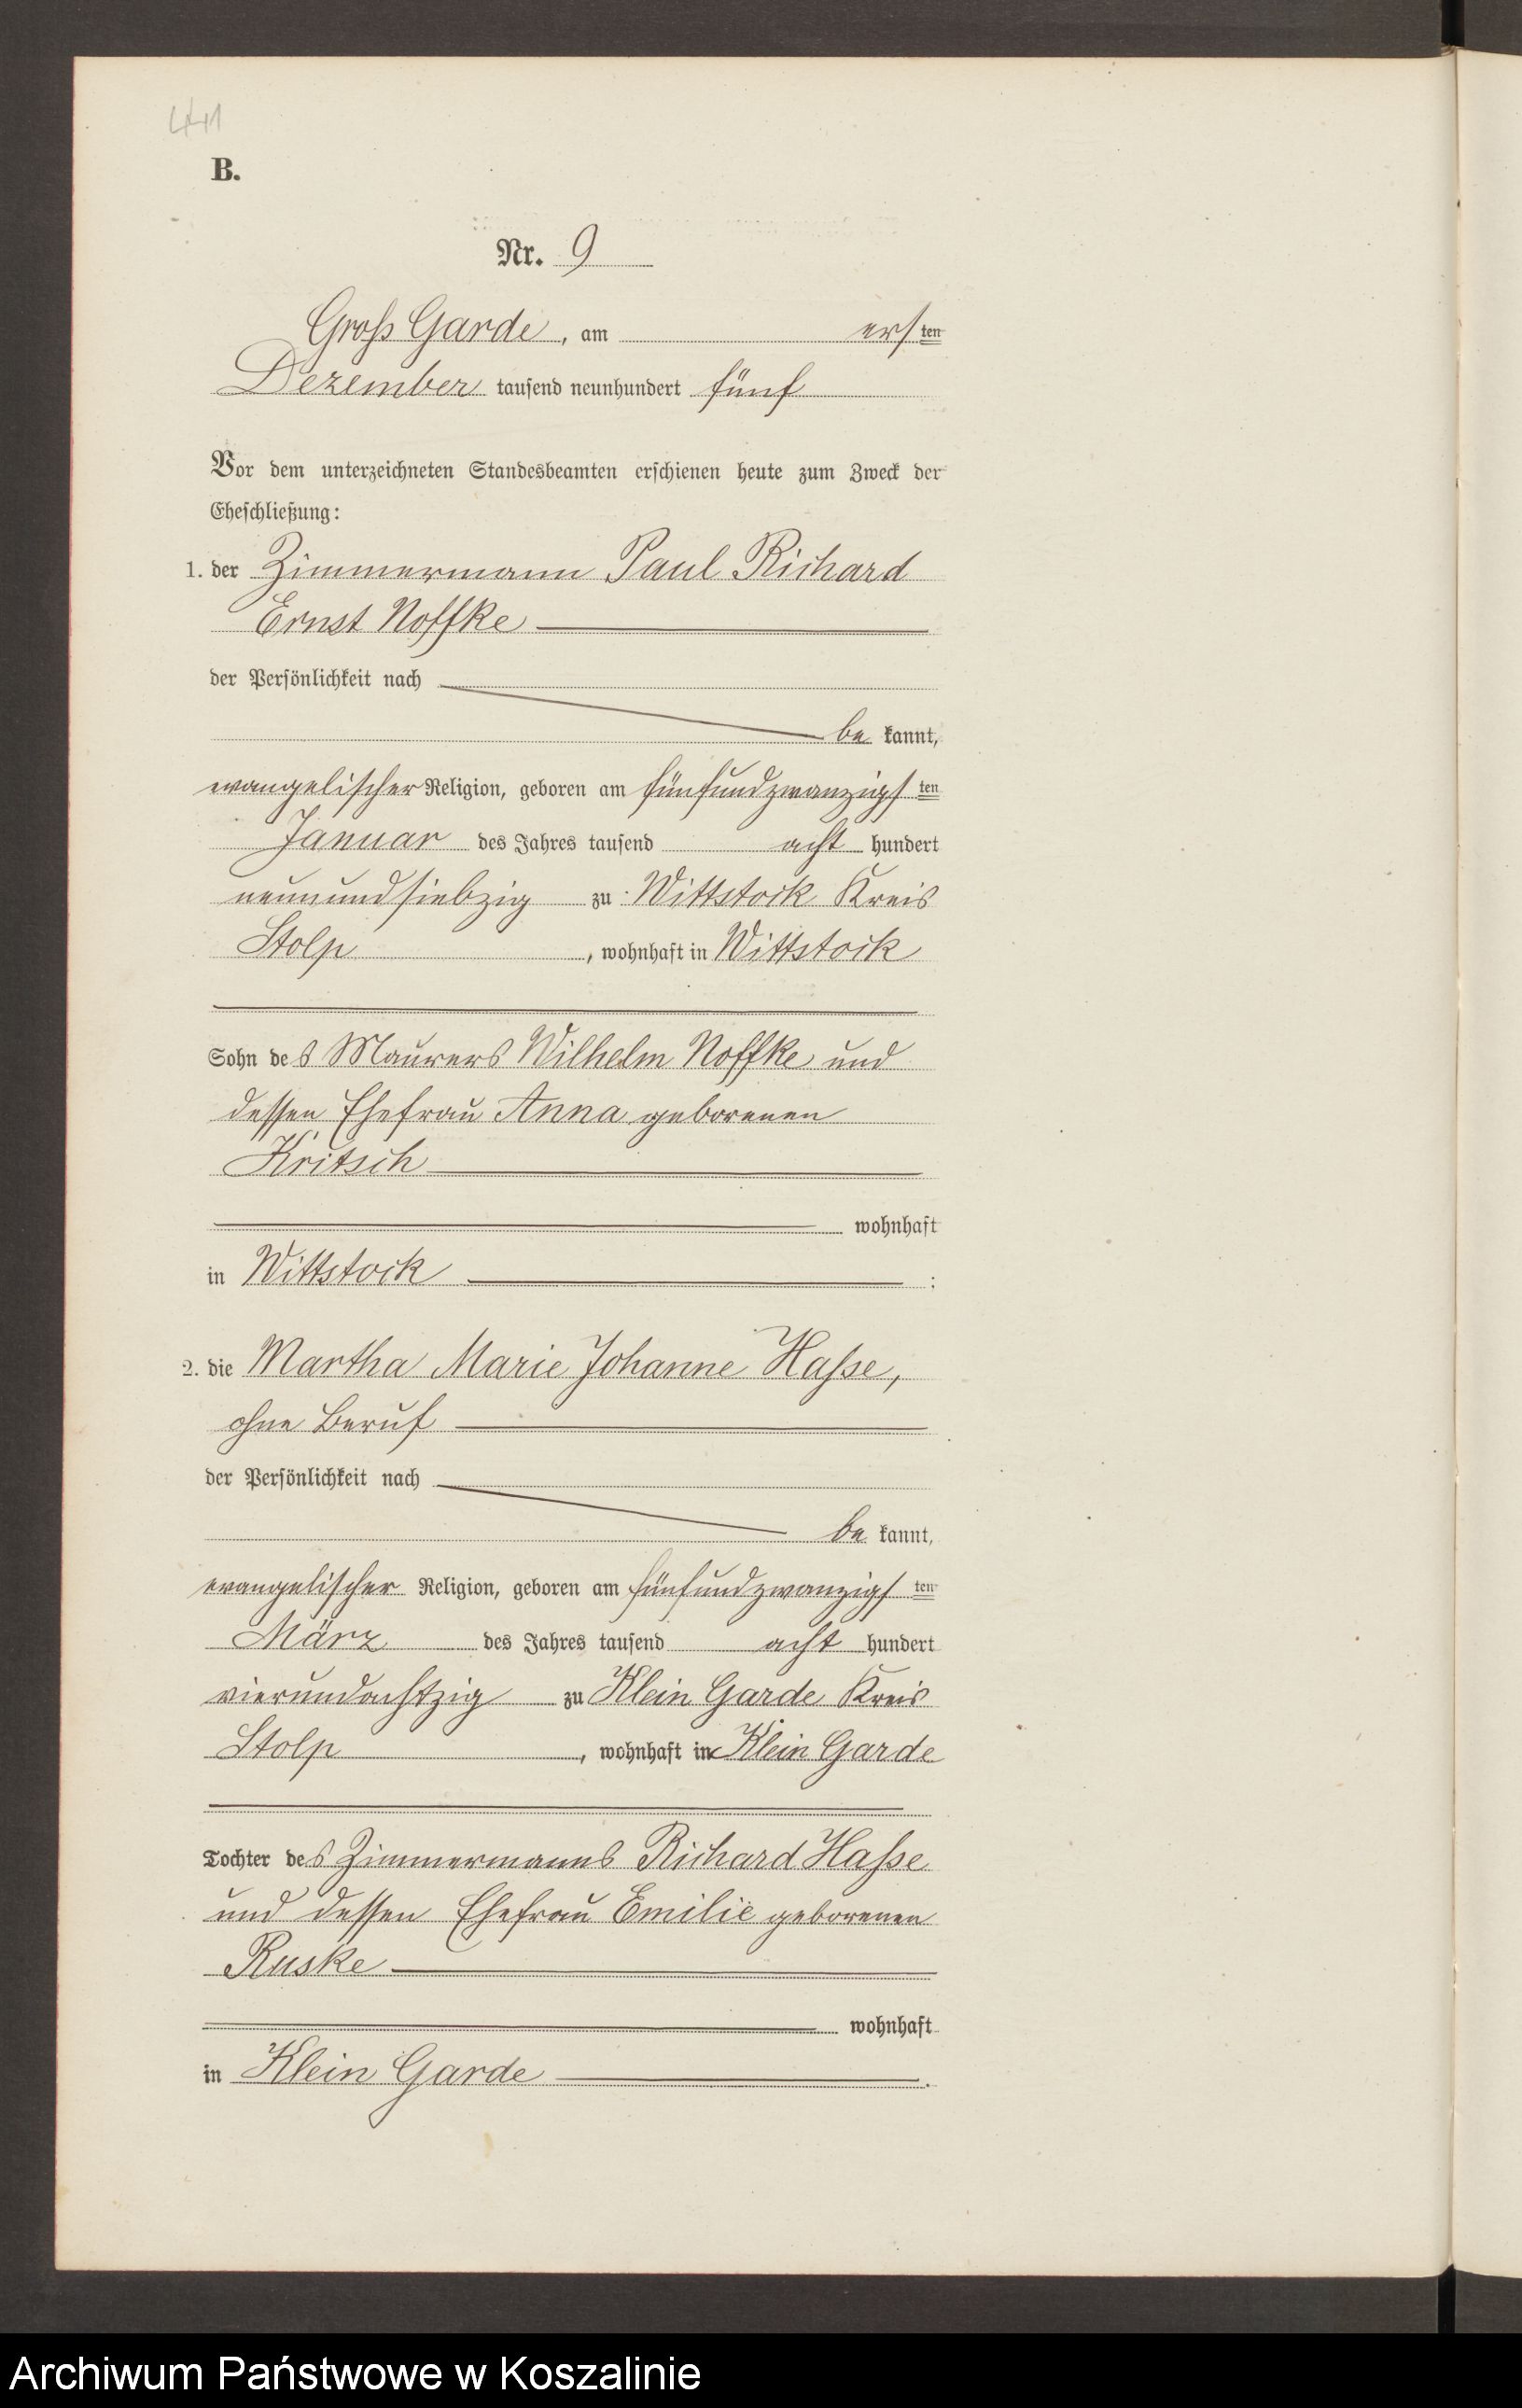 441
B.
Nr. 9
Gross Garde, am ersten
Dezember tausend neunhundert fünf
Vor dem unterzeichneten Standesbeamten erschienen heute zum Zweck der
Eheschließung:
1. der Zimmermann Paul Richard
Ernst Noffke
der Persönlichkeit nach
be kannt,
evangelischer Religion, geboren am fünfundzwanzigsten
Januar des Jahres tausend acht hundert
neunundsiebzig zu Wittstock Kreis
Stolp, wohnhaft in Wittstock
Sohn des Maurers Wilhelm Noffke und
dessen Ehefrau Anna geborenen
Kritsch
wohnhaft
in Wittstock ;
2. die Martha Marie Johanne Hasse,
ohne Beruf
der Persönlichkeit nach
be kannt,
evangelischer Religion, geboren am fünfundzwanzigsten
März des Jahres tausend acht hundert
vierundachtzig zu Klein Garde Kreis
Stolp, wohnhaft in Klein Garde
Tochter des Zimmermanns Richard Hasse
und dessen Ehefrau Emilie geborenen
Ruske
wohnhaft
in Klein Garde.
Archiwum Państwowe w Koszalinie